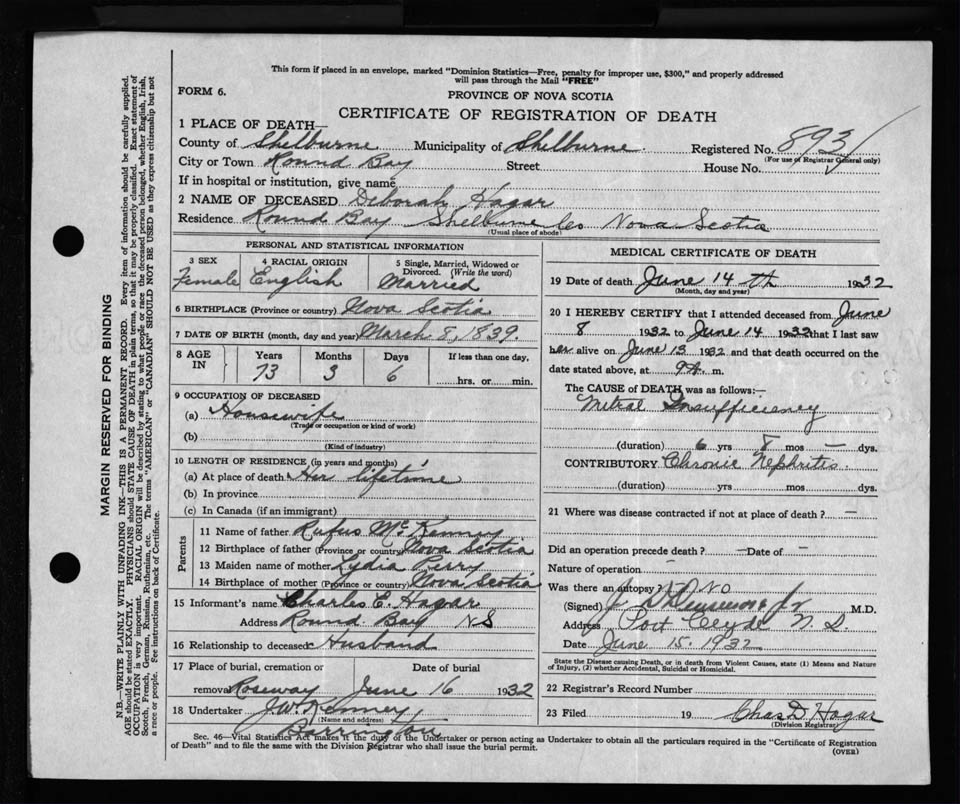 This form if placed in an envelope, marked "Dominion Statistics—Free, penalty for improper use, $300," and properly addressed
will pass through the Mail "FREE"
FORM 6.
PROVINCE OF NOVA SCOTIA
CERTIFICATE OF REGISTRATION OF DEATH
1 PLACE OF DEATH—
County of Shelburne Municipality of Shelburne Registered No. 893
(For use of Registrar General only)
City or Town Round Bay Street House No.
If in hospital or institution, give name
2 NAME OF DECEASED Deborah Hagar
Residence Round Bay Shelburne Co Nova Scotia
(Usual place of abode)
PERSONAL AND STATISTICAL INFORMATION
3 SEX 4 RACIAL ORIGIN 5 Single, Married, Widowed or Divorced. (Write the word)
Female English Married
6 BIRTHPLACE (Province or country) Nova Scotia
7 DATE OF BIRTH (month, day and year) March 8, 1839.
8 AGE IN Years Months Days If less than one day,
73 3 6 hrs. or min.
9 OCCUPATION OF DECEASED
(a) Housewife
(Trade or occupation or kind of work)
(b)
(Kind of industry)
10 LENGTH OF RESIDENCE (in years and months)
(a) At place of death Her lifetime
(b) In province
(c) In Canada (if an immigrant)
Parents
11 Name of father Rufus McKenney
12 Birthplace of father (Province or country) Nova Scotia
13 Maiden name of mother Lydia Perry
14 Birthplace of mother (Province or country) Nova Scotia
15 Informant's name Charles E. Hagar
Address Round Bay NS
16 Relationship to deceased Husband
17 Place of burial, cremation or Date of burial
removal Roseway June 16 1932
18 Undertaker J.W. Kenney
(Name and address)
Barrington
MEDICAL CERTIFICATE OF DEATH
19 Date of death June 14th 1932
(Month, day and year)
20 I HEREBY CERTIFY that I attended deceased from June
8 1932 to June 14 1932 that I last saw
her alive on June 13 1932 and that death occurred on the
date stated above, at 9 m.
The CAUSE of DEATH was as follows:—
Mitral Insufficiency
(duration) 6 yrs 8 mos — dys.
CONTRIBUTORY Chronic Nephritis.
(duration) yrs. mos. dys.
21 Where was disease contracted if not at place of death? —
Did an operation precede death? — Date of —
Nature of operation —
Was there an autopsy? No
(Signed) Jr M.D.
Address Port Clyde N.S.
Date June 15. 1932
State the Disease causing Death, or in death from Violent Causes, state (1) Means and Nature
of Injury, (2) whether Accidental, Suicidal or Homicidal.
22 Registrar's Record Number
23 Filed 19 Chas D Hagar
(Division Registrar)
Sec. 46—Vital Statistics Act makes it the duty of the Undertaker or person acting as Undertaker to obtain all the particulars required in the "Certificate of Registration
of Death" and to file the same with the Division Registrar who shall issue the burial permit.
(OVER)
MARGIN RESERVED FOR BINDING
N.B.—WRITE PLAINLY WITH UNFADING INK—THIS IS A PERMANENT RECORD. Every item of information should be carefully supplied.
AGE should be stated EXACTLY. PHYSICIANS should STATE CAUSE OF DEATH in plain terms, so that it may be properly classified. Exact statement of
OCCUPATION is very important. RACIAL ORIGIN will be described by stating to what people or race the deceased person belonged, whether English, Irish,
Scotch, French, German, Russian, Ruthenian, etc. The terms "AMERICAN" or "CANADIAN" SHOULD NOT BE USED as they express citizenship but not
a race or people. See instructions on back of Certificate.